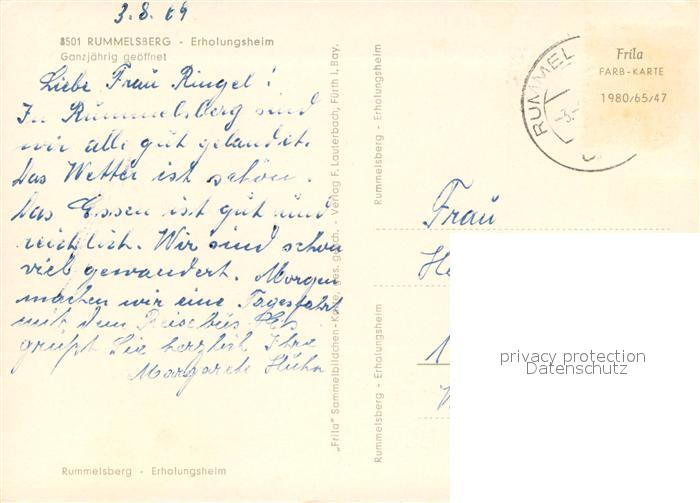 3.8.69
8501 RUMMELSBERG - Erholungsheim
Ganzjährig geöffnet
Liebe Frau Ringel!
In Rummelsberg sind
wir alle gut gelandet.
Das Wetter ist schön.
Das Essen ist gut und
reichlich. Wir sind schon
viel gewandert. Morgen
machen wir eine Tagesfahrt
mit dem Reisebus. Es
grüßt Sie herzlich Ihre
Margarete Hühn
Rummelsberg - Erholungsheim
„Frila" Sammelbildchen- ges. gesch. - Verlag F. Lauterbach, Fürth i. Bay.
Rummelsberg - Erholungsheim
Rummelsberg - Erholungsheim
RUMMEL
Frila
FARB-KARTE
1980/65/47
Frau
privacy protection
Datenschutz